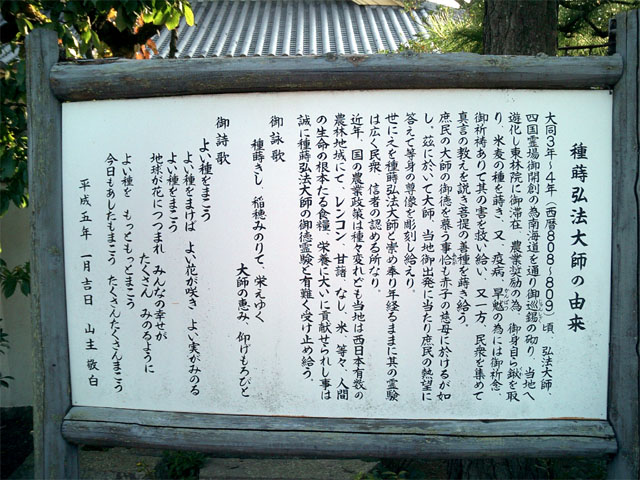 種蒔弘法大師の由来
大同3年～4年（西暦808～809）頃、弘法大師、
四国霊場御開創の為南海道を通り御巡錫の砌り、当地へ
遊化し東林院に御滞在、農業奨励の為、御身自ら鍬を取
り、米麦の種を蒔き、又、疫病、旱魃の為には御祈念、
御祈祷ありて其の害を救い給い、又一方、民衆を集めて
真言の教えを説き菩提の善種を蒔き給う。
庶民の大師の御徳を慕う事恰も赤子の慈母に於けるが如
し、玆に於いて大師、当地御出発に当たり庶民の熱望に
答えて等身の尊像を彫刻し給えり。
世にこれを種蒔弘法大師と崇め奉り年経るままに其の霊験
は広く民衆、信者の認める所なり。
近年、国の農業政策は種々変れども当地は西日本有数の
農林地域にて、レンコン、甘藷、なし、米、等々、人間
の生命の根本たる食糧、栄養に大いに貢献せられし事は
誠に種蒔弘法大師の御徳霊験と有難く受け止め給う。
御詠歌
種蒔きし、稲穂みのりて、栄えゆく
大師の恵み、仰げもろびと
御詩歌
よい種をまこう
よい種をまけば よい花が咲き よい実がみのる
よい種をまこう
地球が花につつまれ みんなの幸せが
たくさん みのるように
よい種を もっともっとまこう
今日もあしたもまこう たくさんたくさんまこう
平成五年 一月吉日 山主 敬白